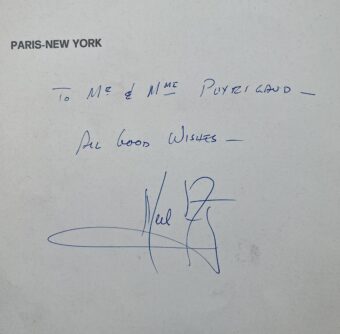 PARIS-NEW YORK
To Mr & Mme PUYRIGAUD —
ALL GOOD WISHES —
Neil